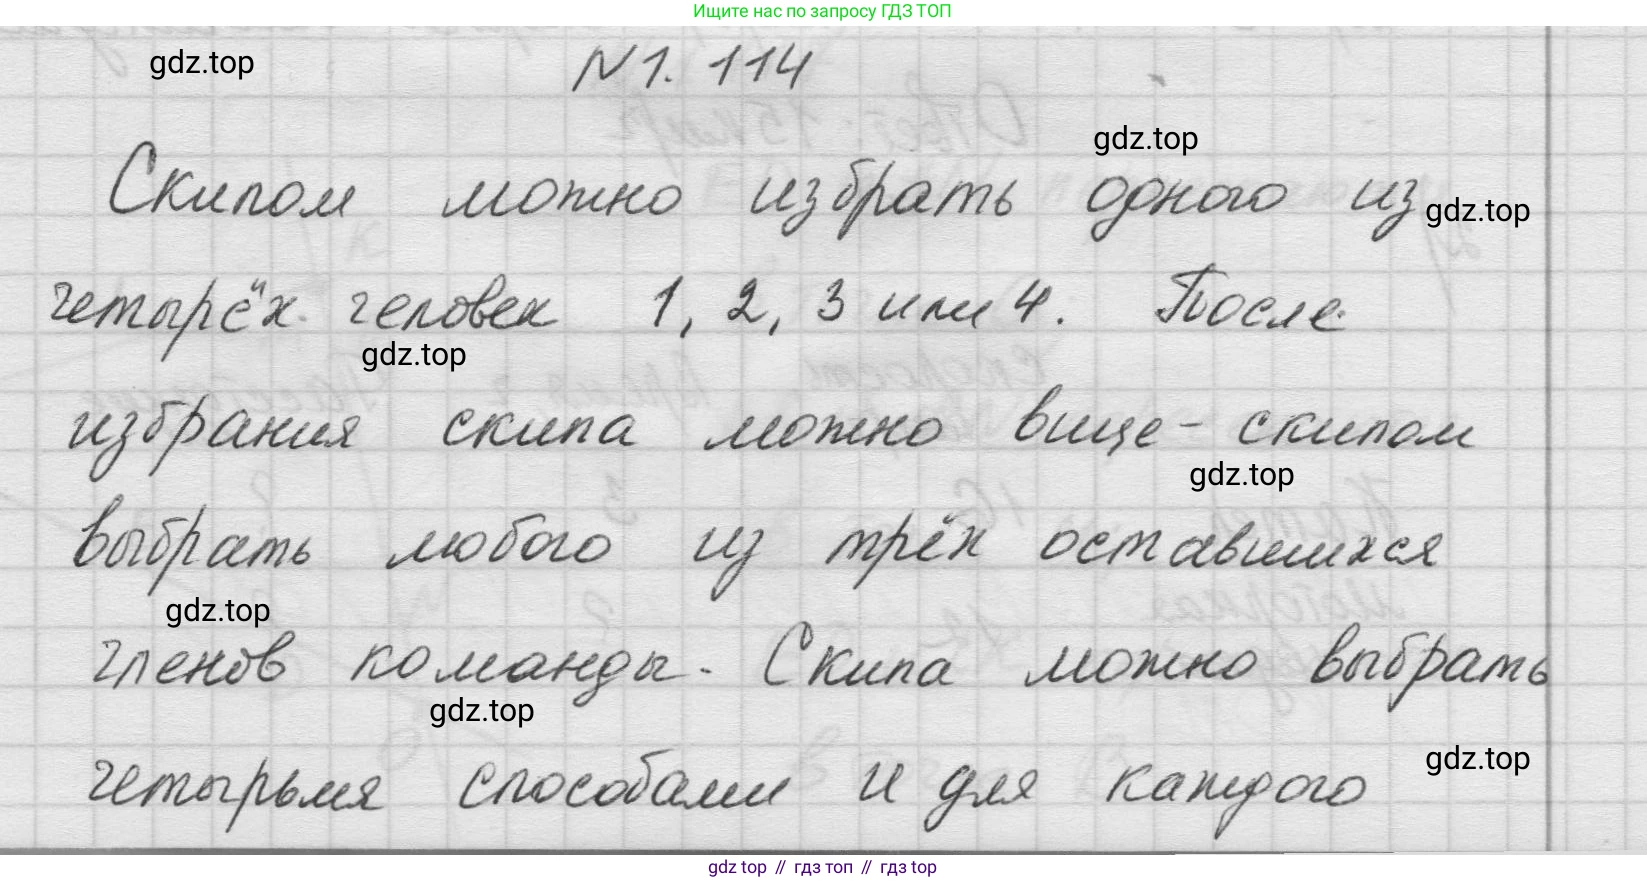 Ищите нас по запросу ГДЗ ТОП
gdz.top
N1. 114
gdz.top
Скипом можно избрать одного из
gdz.top
четырёх человек 1, 2, 3 или 4. После
gdz.top
избрания скипа можно вице-скипом
gdz.top
выбрать любого из трёх оставшихся
gdz.top
членов команды. Скипа можно выбрать
gdz.top
gdz.top
четырьмя способами и для каждого
gdz.top // гдз топ // гдз top